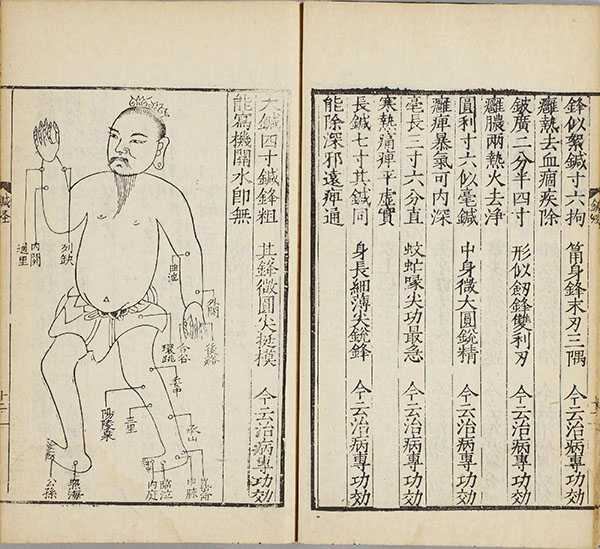 鋒似絮鍼寸六拘　筩身鋒末刃三隅　今云治病專功効
癰熱去血痼疾除
鈹廣二分半四寸　形似劒鋒雙利刃　今云治病專功効
癰膿兩熱火去淨
圓利寸六似毫鍼　中身微大圓銳精　今云治病專功効
癰痺暴氣可內深
毫長三寸六分直　蚊虻喙尖功最急　今云治病專功効
寒熱痛痺平虛實
長鍼七寸其鍼同　身長細薄尖銳鋒　今云治病專功効
能除深邪遠痺通
大鍼四寸鍼鋒粗　其鋒微圓尖挺模　今云治病專功効
能寫機關水即無
列缺
內關
通里
曲池
外關
合谷
環跳
委中
陽陵泉
承山
申脉
臨泣
內庭
照海
公孫
鍼經